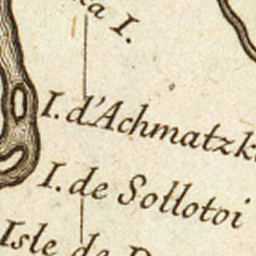 ka I.
I. d'Achmatzk
I. de Sollotoi
Isle de